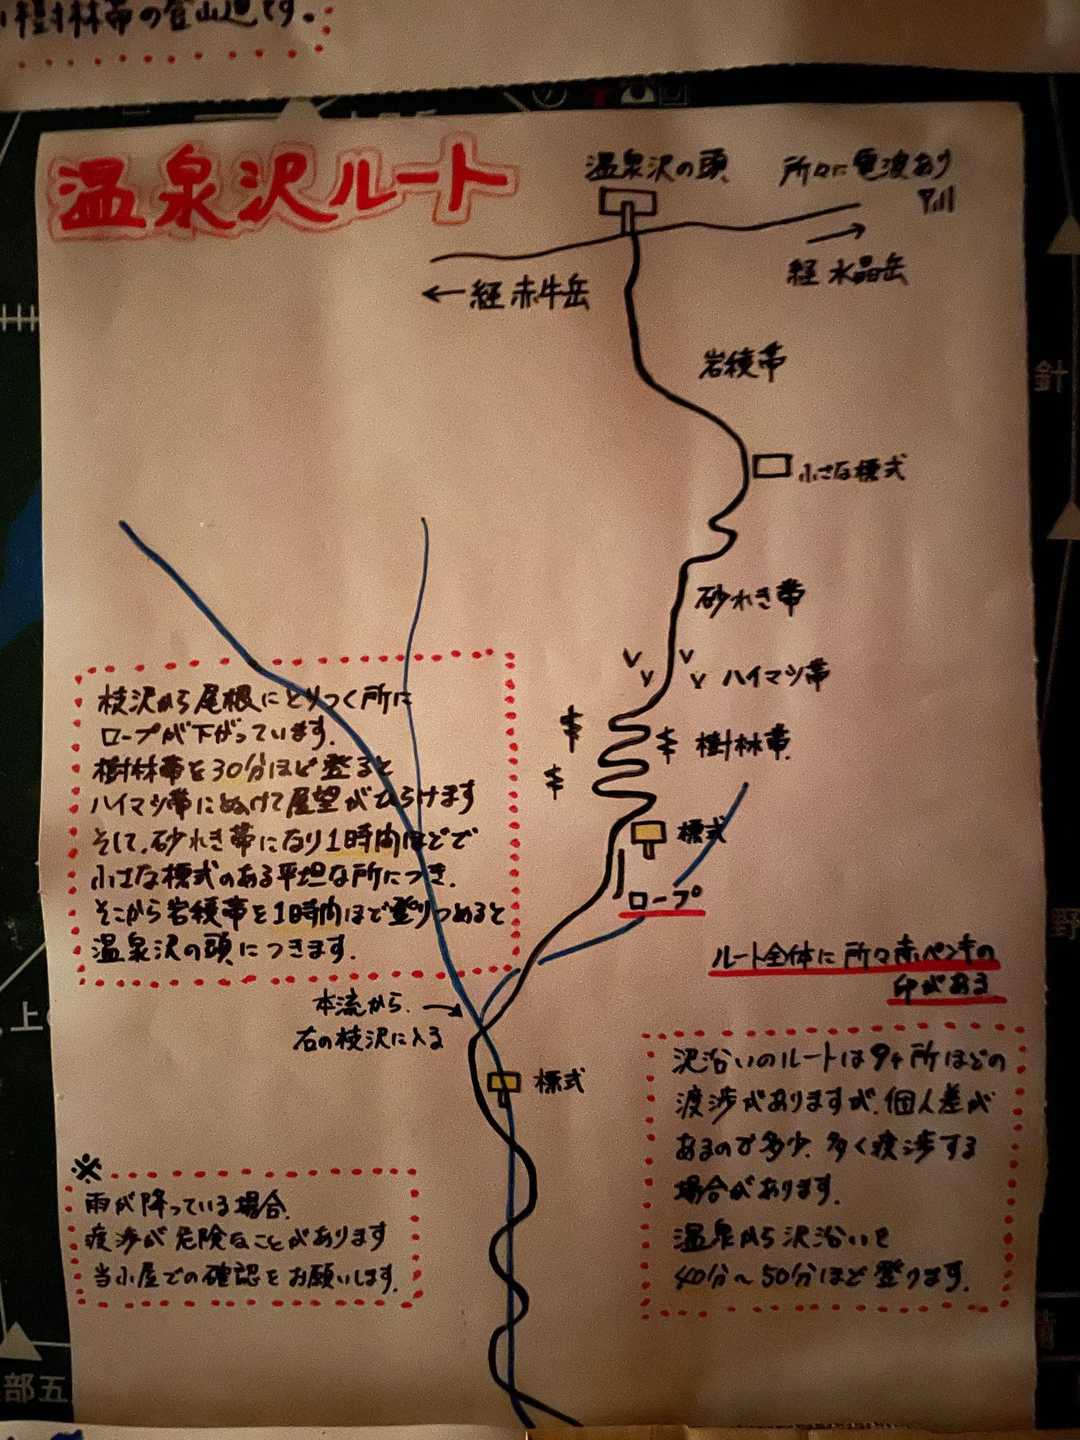 樹林帯の登山道です。
温泉沢ルート
温泉沢の頭
所々に電波あり
経 赤牛岳
経 水晶岳
岩稜帯
小さな標式
砂れき帯
ハイマツ帯
樹林帯
標式
ロープ
枝沢から尾根にとりつく所に
ロープが下がっています。
樹林帯を30分ほど登ると
ハイマツ帯にぬけて展望がひらけます
そして、砂れき帯になり1時間ほどで
小さな標式のある平坦な所につき、
そこから岩稜帯を1時間ほど登りつめると
温泉沢の頭につきます。
ルート全体に所々赤ペンキの
印がある
本流から
右の枝沢に入る
標式
沢沿いのルートは9ヶ所ほどの
渡渉がありますが、個人差が
あるので多少、多く渡渉する
場合があります。
温泉から沢沿いを
40分~50分ほど登ります。
※
雨が降っている場合、
渡渉が危険なことがあります
当小屋での確認をお願いします。
針
野
上
部五